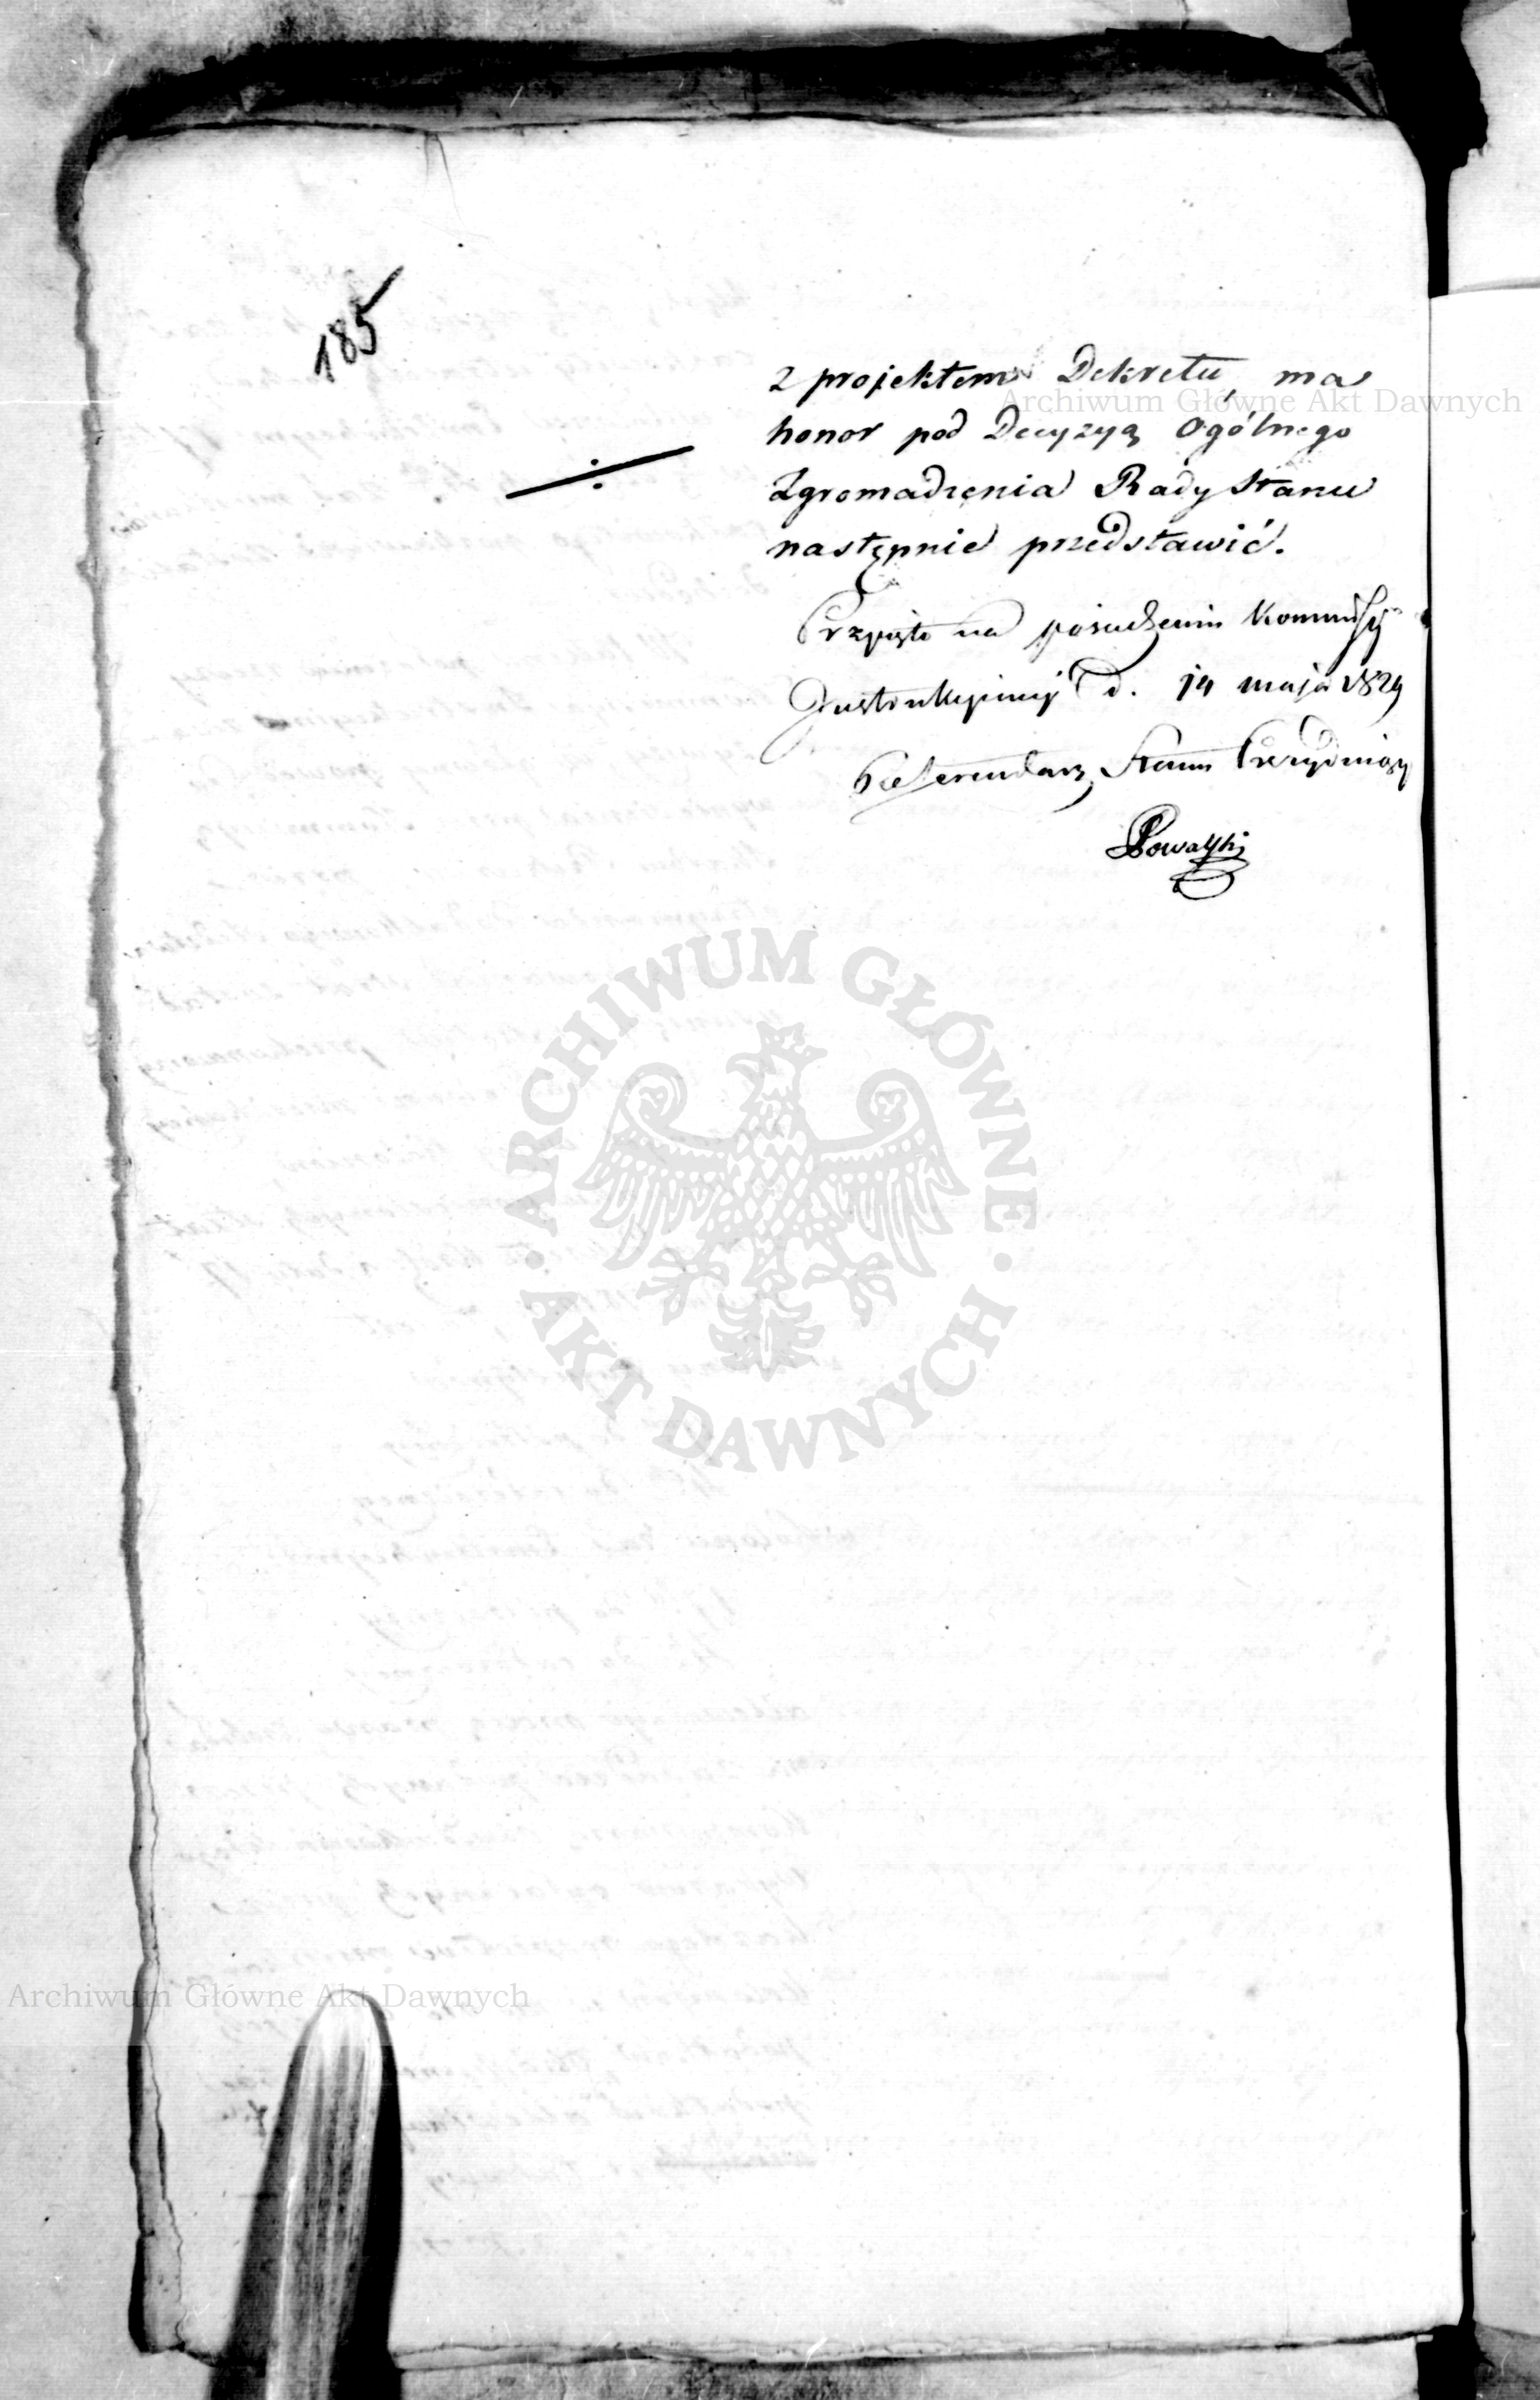 185
z projektem Dekretu, ma
honor pod Decyzyą Ogólnego
Zgromadzenia Rady Stanu
następnie przedstawić.
Przyięto na posiedzeniu Kommissyi
Instrukcyiney d. 14 maja 1829
Referendarz Stanu Prezyduiący
Archiwum Główne Akt Dawnych
ARCHIWUM GŁÓWNE
AKT DAWNYCH
Archiwum Główne Akt Dawnych